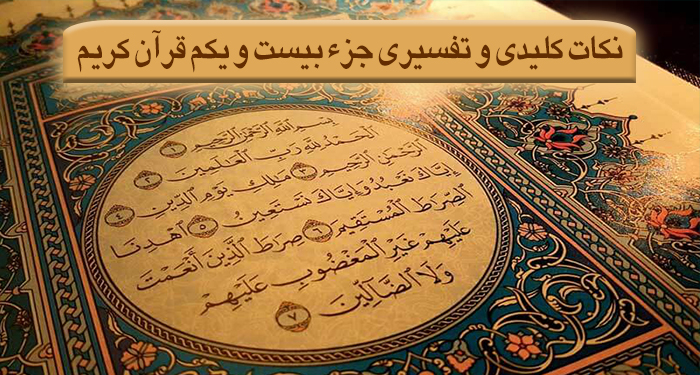 نکات کلیدی و تفسیری جزء بیست و یکم قرآن کریم
بِسْمِ ٱللَّهِ ٱلرَّحْمَٰنِ ٱلرَّحِيمِ ١
ٱلْحَمْدُ لِلَّهِ رَبِّ ٱلْعَٰلَمِينَ ٢
ٱلرَّحْمَٰنِ ٱلرَّحِيمِ ٣ مَٰلِكِ يَوْمِ ٱلدِّينِ ٤
إِيَّاكَ نَعْبُدُ وَإِيَّاكَ نَسْتَعِينُ ٥ ٱهْدِنَا
ٱلصِّرَٰطَ ٱلْمُسْتَقِيمَ ٦ صِرَٰطَ ٱلَّذِينَ أَنْعَمْتَ
عَلَيْهِمْ غَيْرِ ٱلْمَغْضُوبِ عَلَيْهِمْ
وَلَا ٱلضَّآلِّينَ ٧